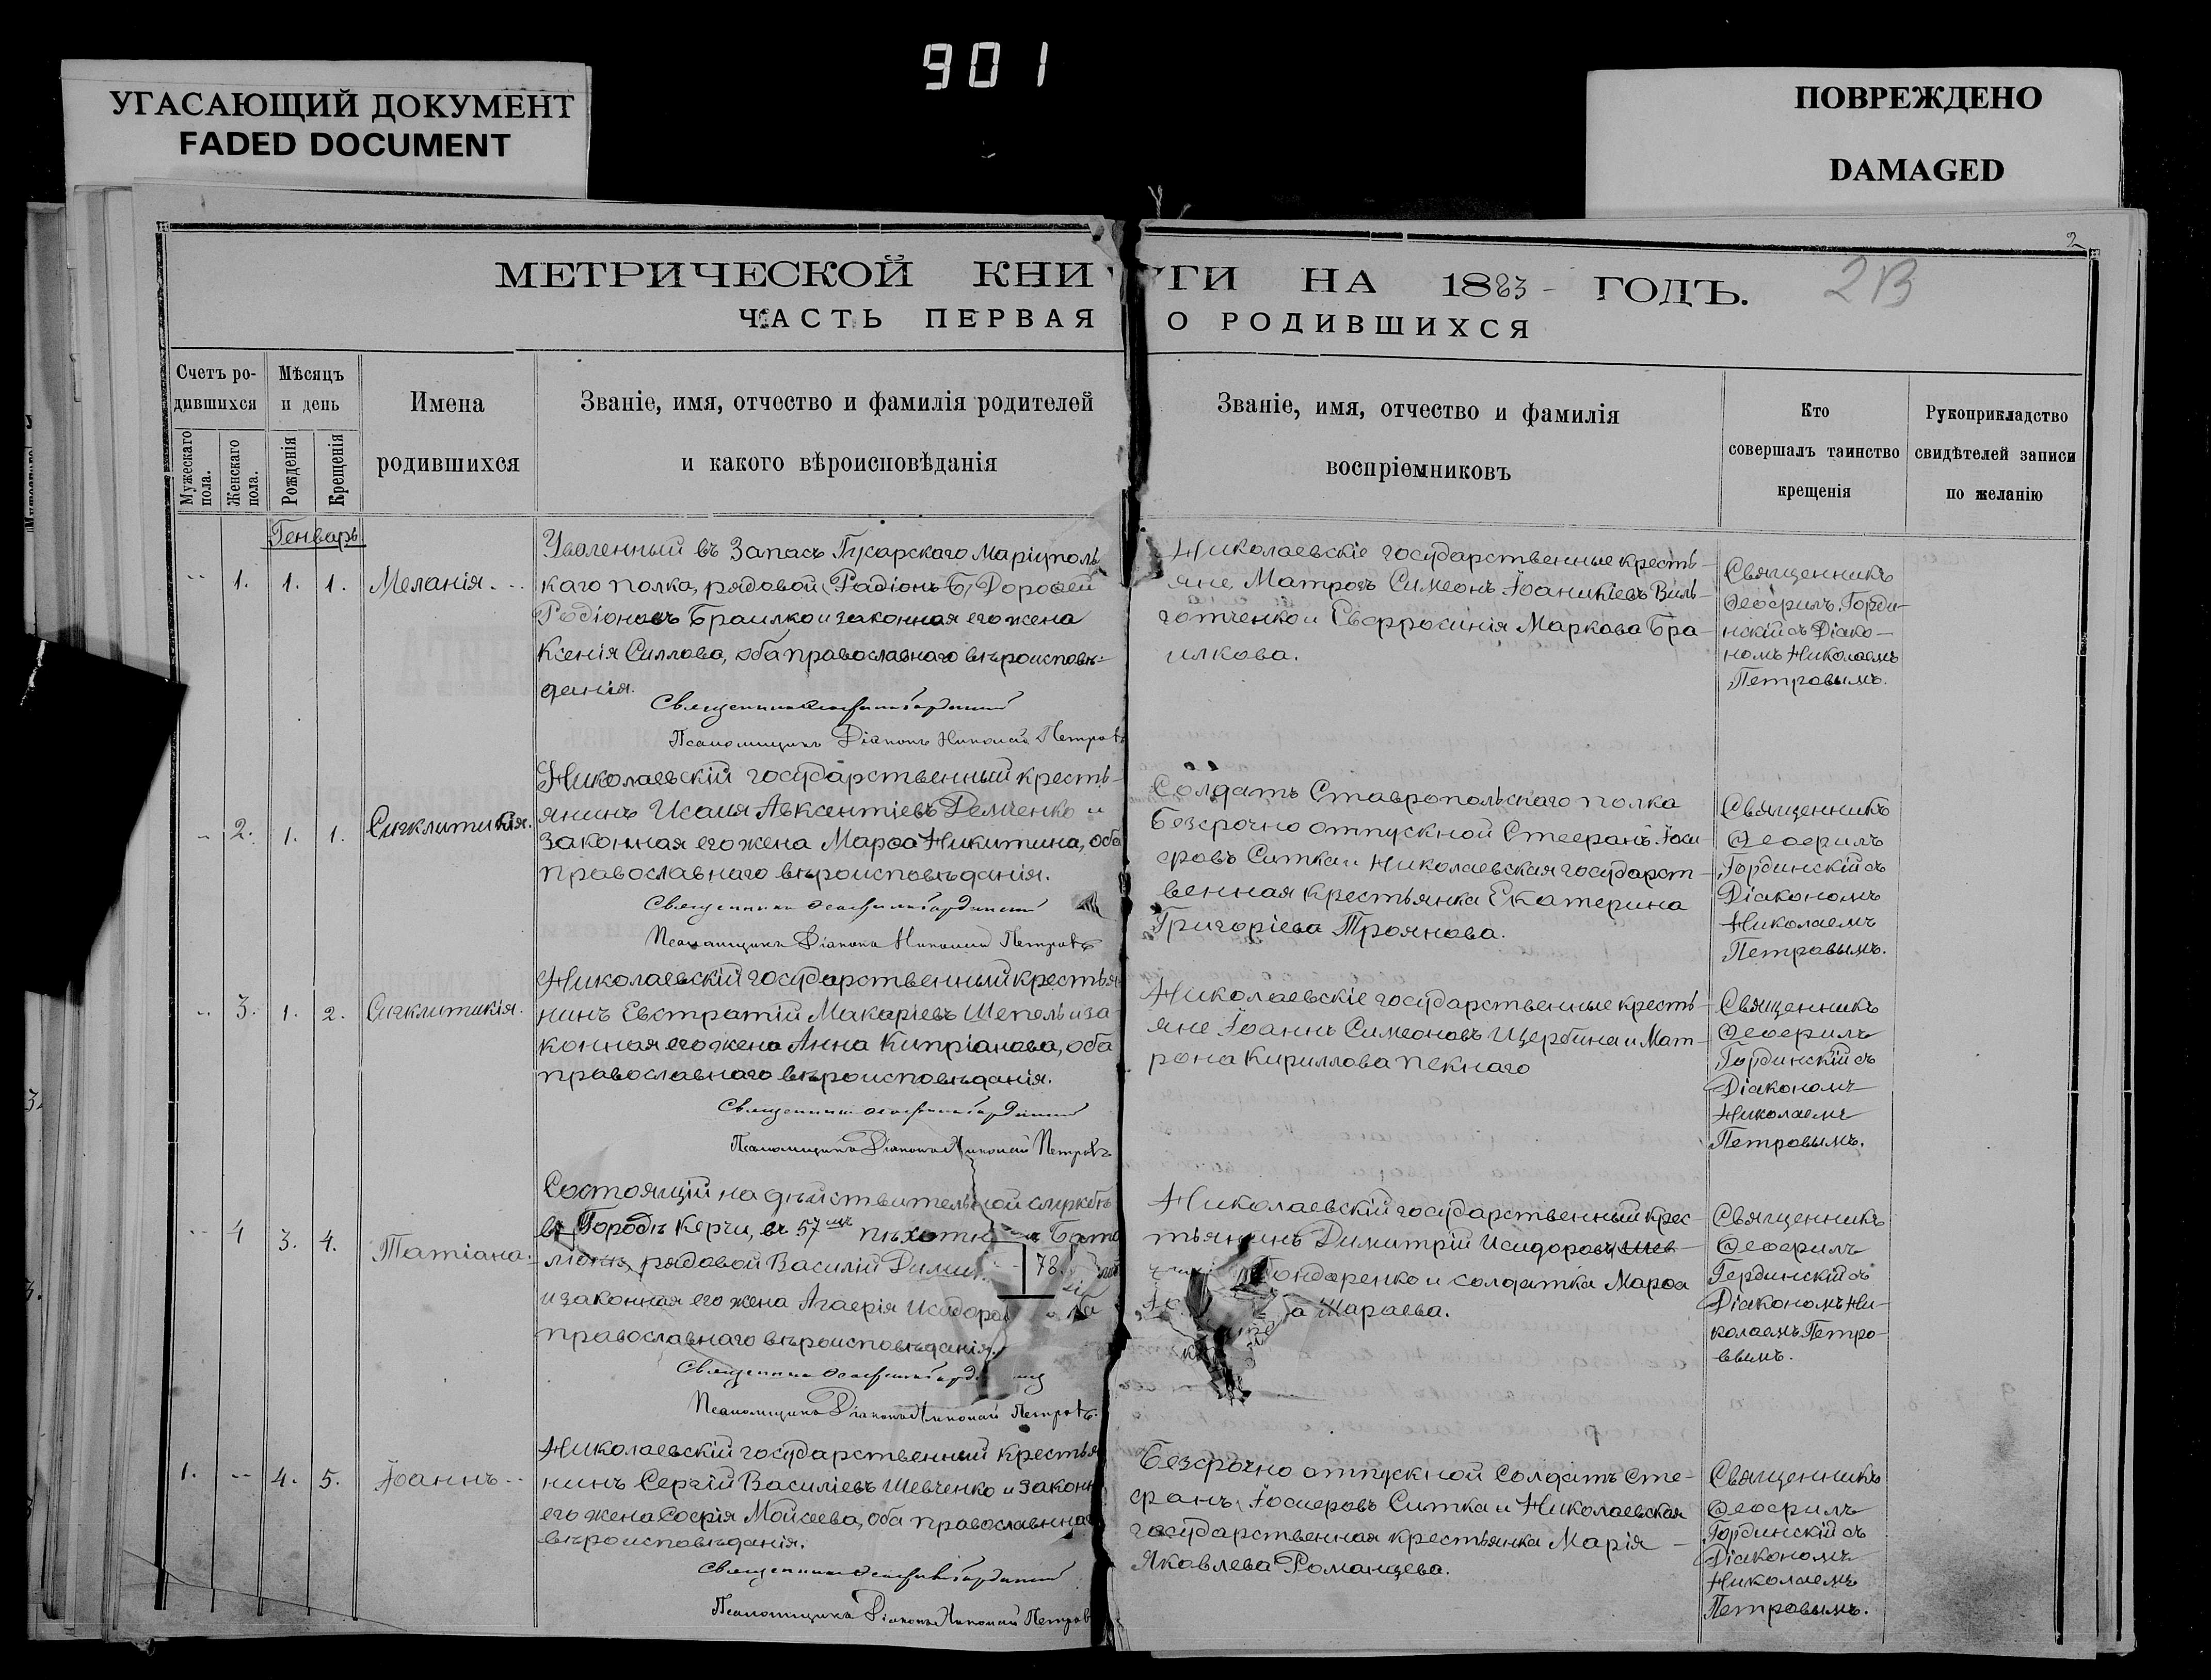 901
УГАСАЮЩИЙ ДОКУМЕНТ
FADED DOCUMENT
ПОВРЕЖДЕНО
DAMAGED
2
МЕТРИЧЕСКОЙ КНИГИ НА 1883 ГОДЪ.
2В
ЧАСТЬ ПЕРВАЯ О РОДИВШИХСЯ
Счетъ родившихся
Мужескаго пола.
Женскаго пола.
Мѣсяцъ и день
Рожденія
Крещенія
Имена
родившихся
Званіе, имя, отчество и фамилія родителей
и какого вѣроисповѣданія
Званіе, имя, отчество и фамилія
воспріемниковъ
Кто
совершалъ таинство
крещенія
Рукоприкладство
свидѣтелей записи
по желанію
Генварь
1. 1. 1. Меланія.
Уволенный въ Запасъ Гусарскаго Маріуполь
каго полка, рядовой Дороѳей
Родіоновъ Браилко и законная его жена
Ксенія Силлова, оба православнаго вѣроисповѣ-
данія.
Священникъ
Псаломщикъ Діаконъ Николай Петровъ
Николаевскіе государственные кресть-
яне, Матросъ Симеонъ Іоанникіевъ Виль-
готченко и Евфросинія Маркова Бра-
илкова.
Священникъ
Ѳеофилъ Горди-
нскій съ Діако-
номъ Николаемъ
Петровымъ.
2. 1. 1. Сигклитикія.
Николаевскій государственный кресть-
янинъ Исаія Авксентіевъ Демченко и
законная его жена Марѳа Никитина, оба
православнаго вѣроисповѣданія.
Священникъ
Псаломщикъ Діаконъ Николай Петровъ
Солдатъ Ставропольскаго полка
безсрочно отпускной Стефанъ Іоси-
фовъ Ситка и Николаевская государст-
венная крестьянка Екатерина
Григоріева Троянова.
Священникъ
Ѳеофилъ
Гординскій съ
Діакономъ
Николаемъ
Петровымъ.
3. 1. 2. Сигклитикія.
Николаевскій государственный крестья
нинъ Евстратій Макаріевъ Шепель и за-
конная его жена Анна Кипріанова, оба
православнаго вѣроисповѣданія.
Священникъ
Псаломщикъ Діаконъ Николай Петровъ
Николаевскіе государственные кресть-
яне Іоаннъ Симеоновъ Щербина и Мат-
рона Кириллова Пекнаго
Священникъ
Ѳеофилъ
Гординскій съ
Діакономъ
Николаемъ
Петровымъ.
4 3. 4. Татіана.
Состоящій на дѣйствительной службѣ
въ Городѣ Керчи, въ 57мъ пѣхотн Бата
ліонѣ, рядовой Василій Дими 78
и законная его жена Агафія Исидоро
православнаго вѣроисповѣданія.
Священникъ
Псаломщикъ Діаконъ Николай Петровъ.
Николаевскій государственный крес-
тьянинъ Димитрій Исидоровъ Шев-
Бондаренко и солдатка Марѳа
а Шараева.
Священникъ
Ѳеофилъ
Гординскій съ
Діакономъ Ни-
колаемъ Петро-
вымъ.
1. 4. 5. Іоаннъ
Николаевскій государственный крестья
нинъ Сергій Василіевъ Шевченко и законн
его жена Софія Мойсеева, оба православнаго
вѣроисповѣданія.
Священникъ
Псаломщикъ Діаконъ Николай Петров
Безсрочно отпускной Солдатъ Сте-
фанъ Іосифовъ Ситка и Николаевская
государственная крестьянка Марія
Яковлева Романцева.
Священникъ
Ѳеофилъ
Гординскій съ
Діакономъ
Николаемъ
Петровымъ.